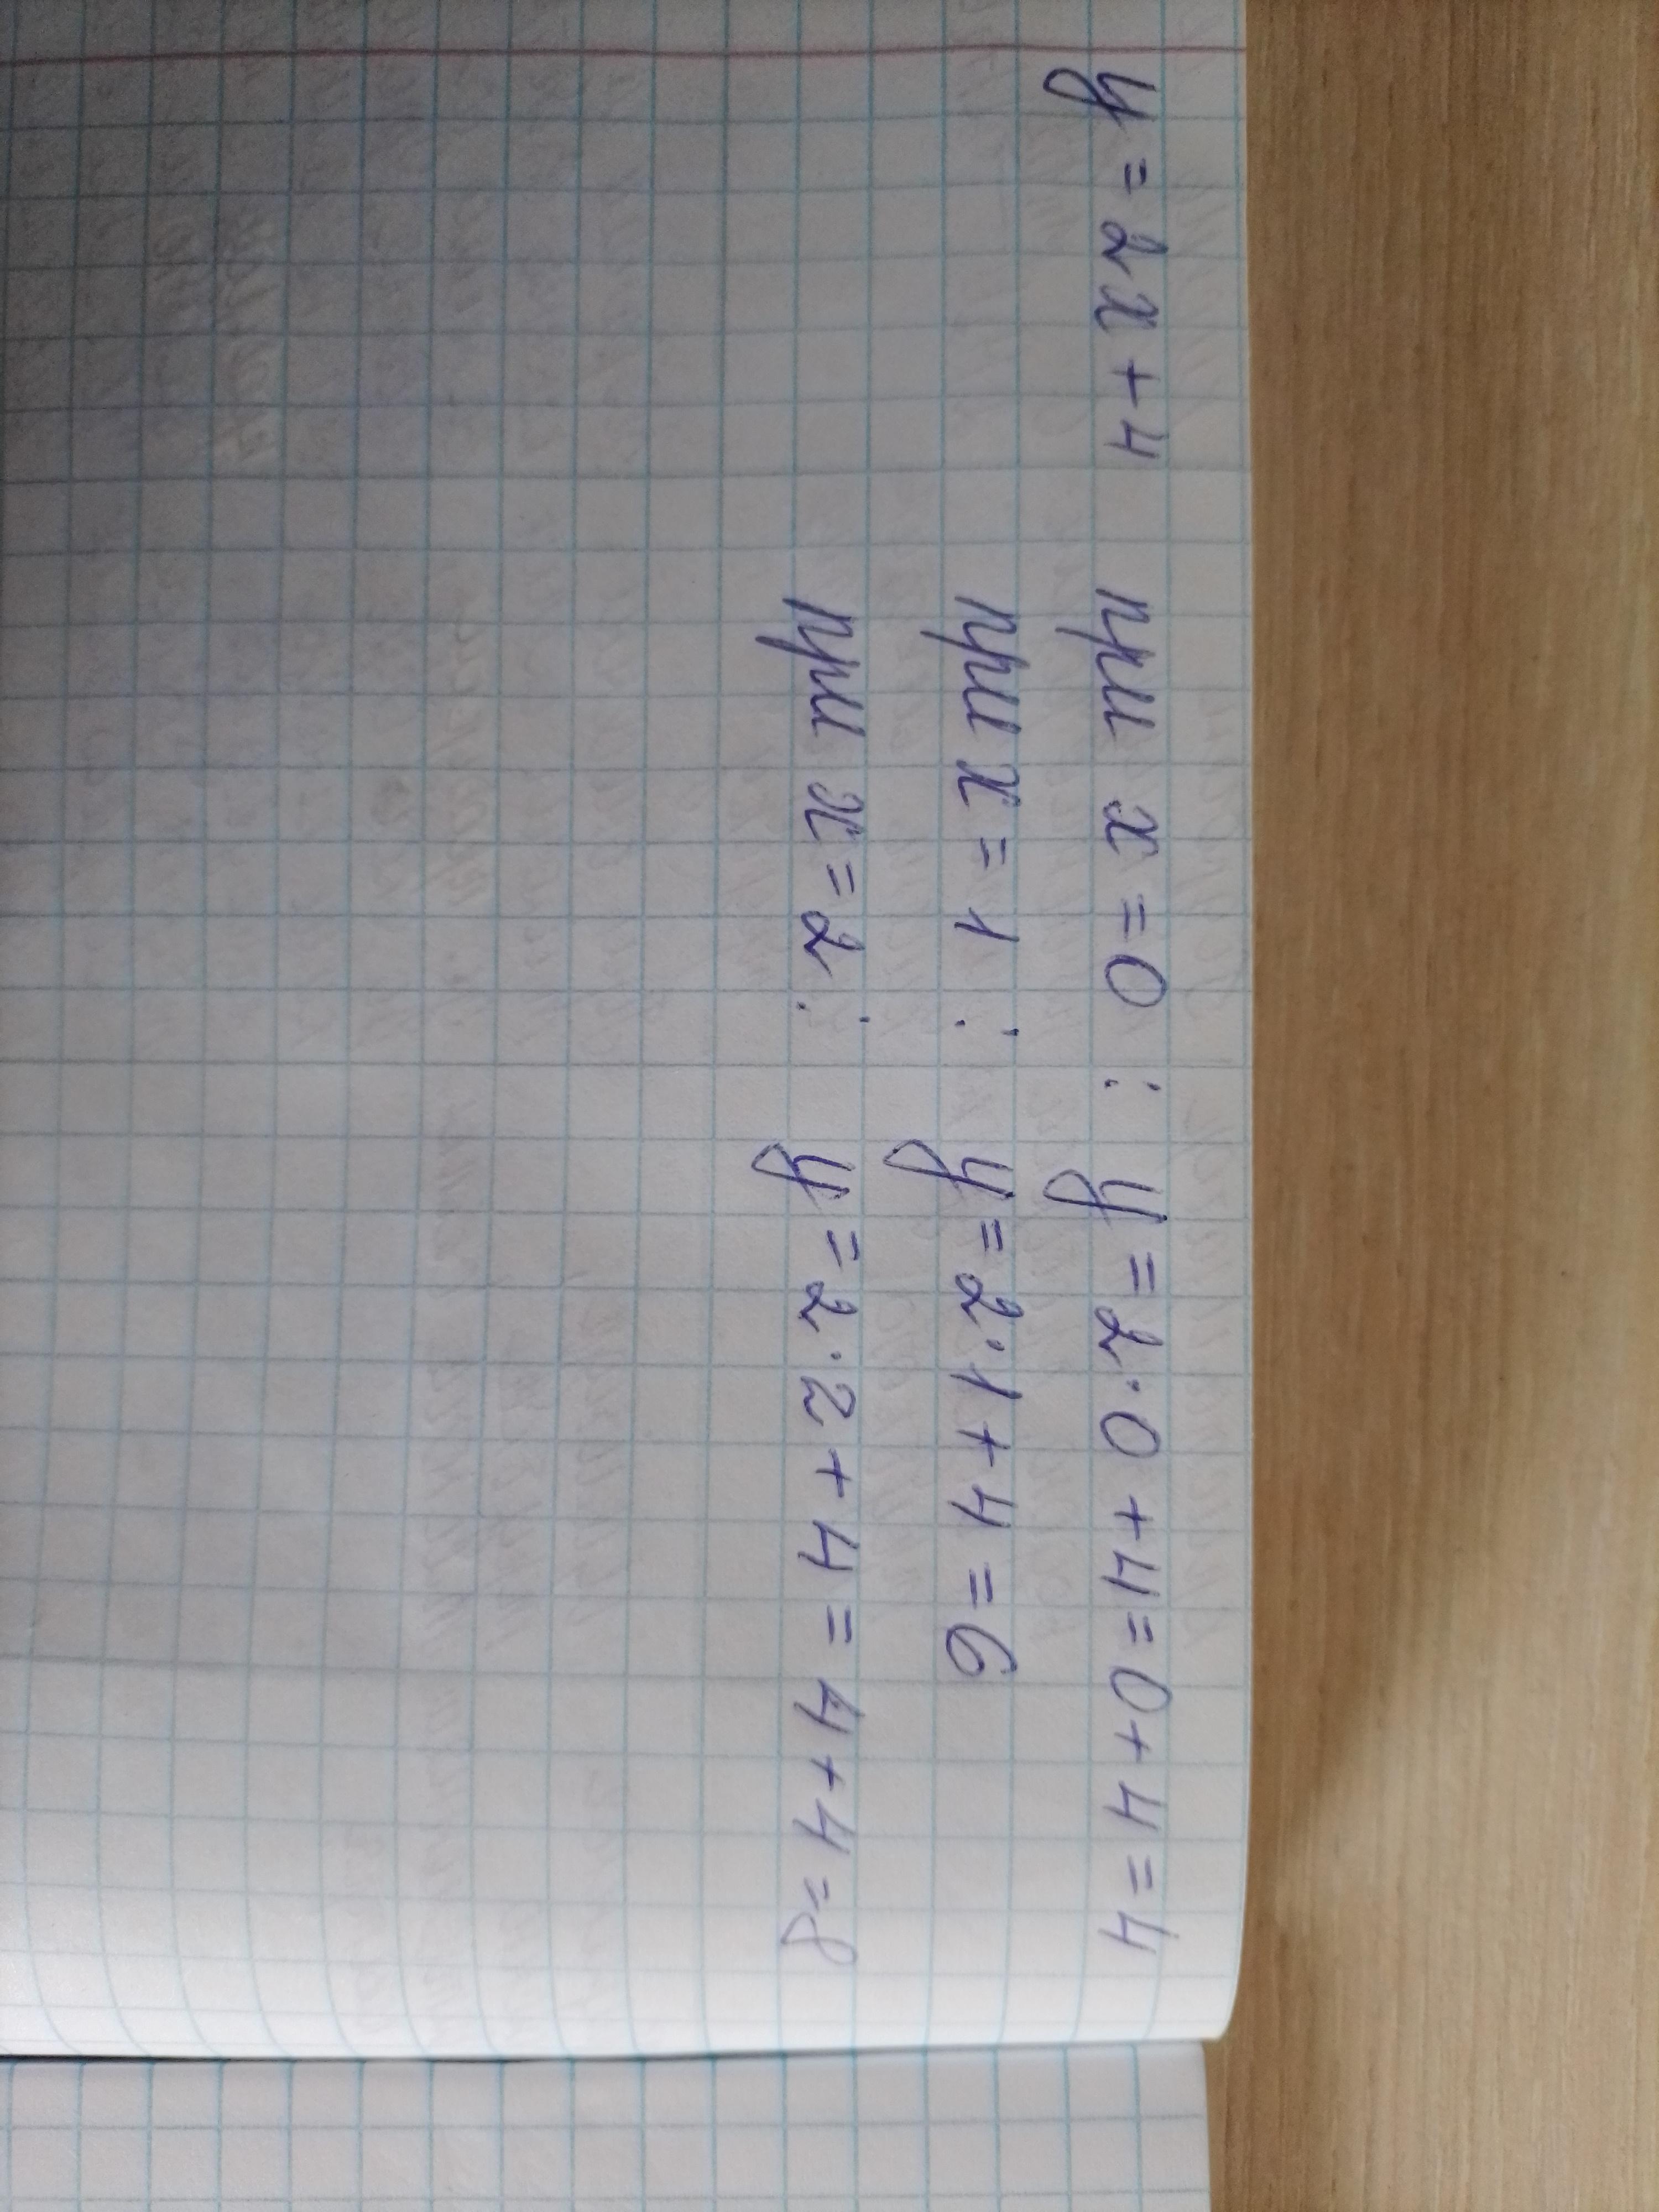 y = 2x + 4 при x = 0 : y = 2·0 + 4 = 0 + 4 = 4
при x = 1 : y = 2·1 + 4 = 6
при x = 2 : y = 2·2 + 4 = 4 + 4 = 8